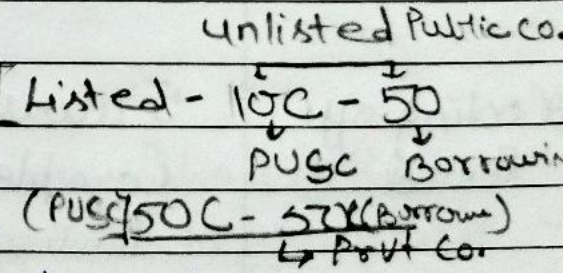 unlisted Public co.
Listed - 10C - 50
PUSC Borrowin
(PUSC) 50C - (Borrowe)
Pvvt Co.